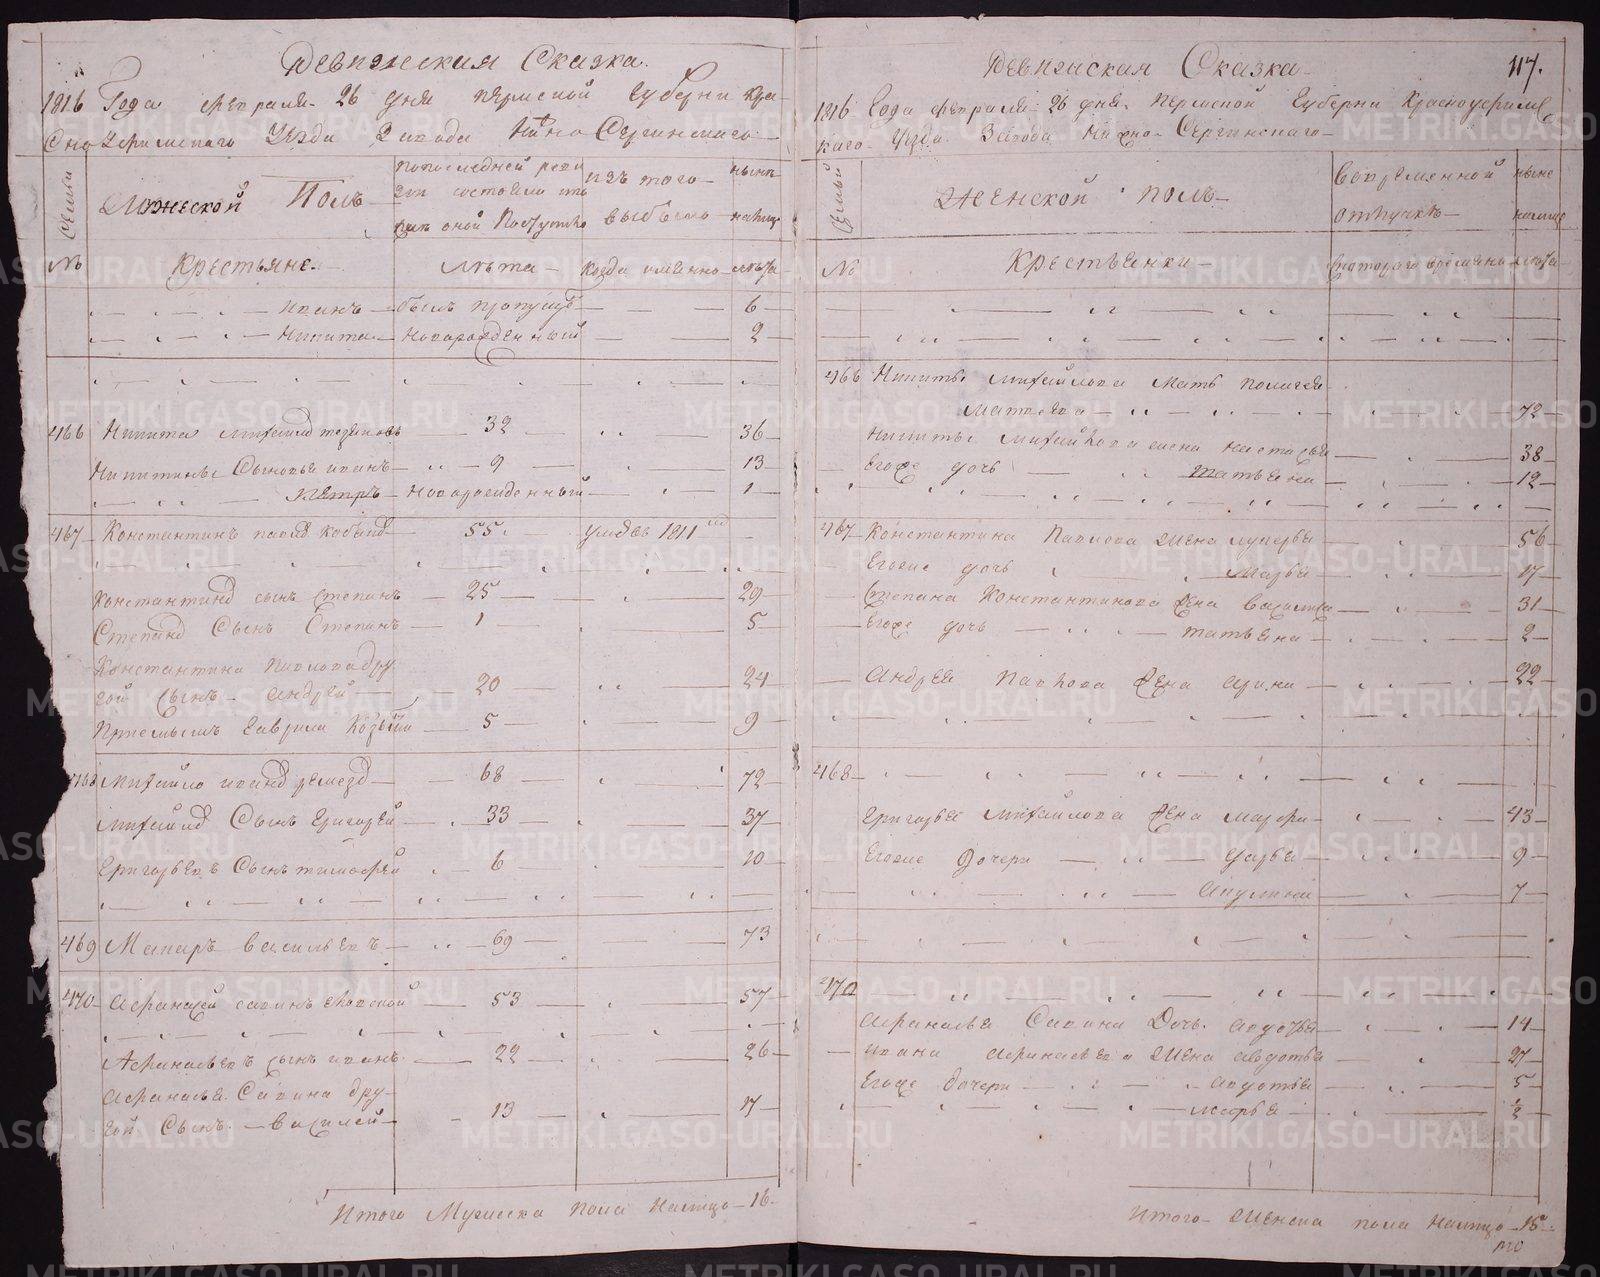 Ревизская Сказка.
1816 Года февраля 26 дня пермской Губерни Кра-
сноуфимскаго Уезда Завода Нижно Сергинскаго
Семьи
Мужеской Полъ
по последней реви
зии состояло или
после оной Поступило
изъ того
выбыло
ныне
на лицо
№
Крестьяне.
лѣта
когда именно
лѣта
Иванъ былъ пропущ 6
Никита новорожденный 2
466 Никита Михайловъ 32 36
Никитины Сыновья иванъ 9 13
Петръ новорожденный 1
467 Константинъ павловъ 55 умре въ 1811
Константиновъ сынъ Степанъ 25 29
Степановъ Сынъ Степанъ 1 5
Константина Павлова дру
гой Сынъ Андрей 20 24
Приемышъ Гаврила 5 9
468 Михайло ивановъ 68 72
Михайловъ Сынъ Григорей 33 37
Григорьевъ Сынъ тимофей 6 10
469 Макаръ васильевъ 69 73
470 Афанасей савинъ 53 57
Афанасьевъ сынъ иванъ 22 26
Афанасья Савина дру
гой Сынъ василей 13 17
Итого Мужеска пола налицо 16
Ревизская Сказка
117.
1816 Года февраля 26 дня. Пермской Губерни Красноуфимс
каго Уезда Завода Нижно Сергинскаго
Семьи
Женской полъ
Во временной
отлучкѣ
ныне
налицо
№
Крестьянки
с котораго времяни
лѣта
466 Никиты Михайлова Мать
72
Никиты Михайлова жена настасья 38
Егоже дочь татьяна 12
467 Константина Павлова жена лукерья 56
Егоже дочь Марья 17
Степана Константинова жена василиса 31
Егоже дочь татьяна 2
Андрея Павлова жена арина 22
468
Григорья Михайлова жена Марфа 43
Егоже Дочери дарья 9
Акулина 7
470
Афанасья Савина Дочь 14
ивана Афанасьева жена авдотья 27
Егоже дочери авдотья 5
марья ½
Итого женска пола налицо 15
METRIKI.GASO-URAL.RU